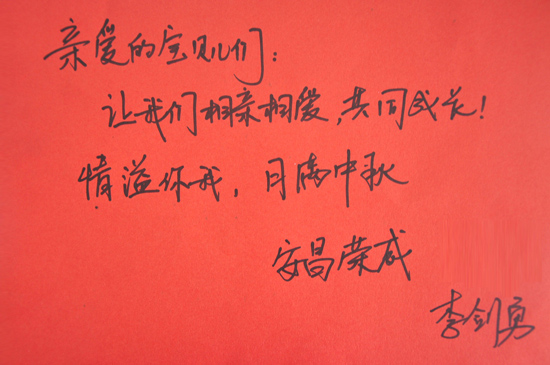 亲爱的宝贝儿们：
让我们相亲相爱，共同成长！
情溢你我，月满中秋
安昌荣成
李剑勇